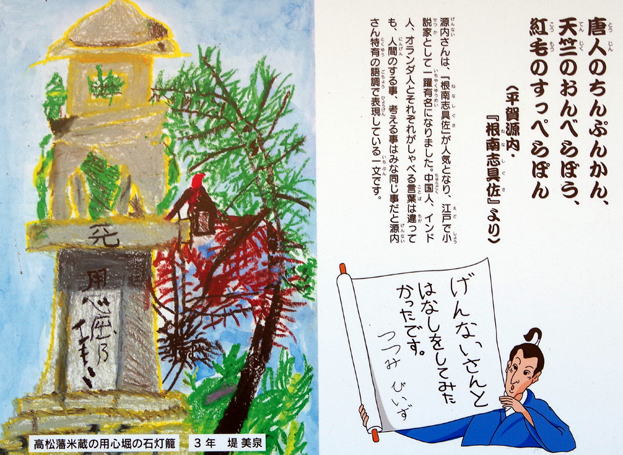 唐人のちんぷんかん、
天竺のおんべらぼう、
紅毛のすっぺらぽん
〈平賀源内
『根南志具佐』より〉
源内さんは、「根南志具佐」が人気となり、江戸で小
説家として一躍有名になりました。中国人、インド
人、オランダ人とそれぞれがしゃべる言葉は違って
も、人間のする事、考える事はみな同じ事だと源内
さん特有の語調で表現している一文です。
げんないさんと
はなしをしてみた
かったです。
つつみ びいず
元
用心堀乃
高松藩米蔵の用心堀の石灯籠 3年 堤 美泉